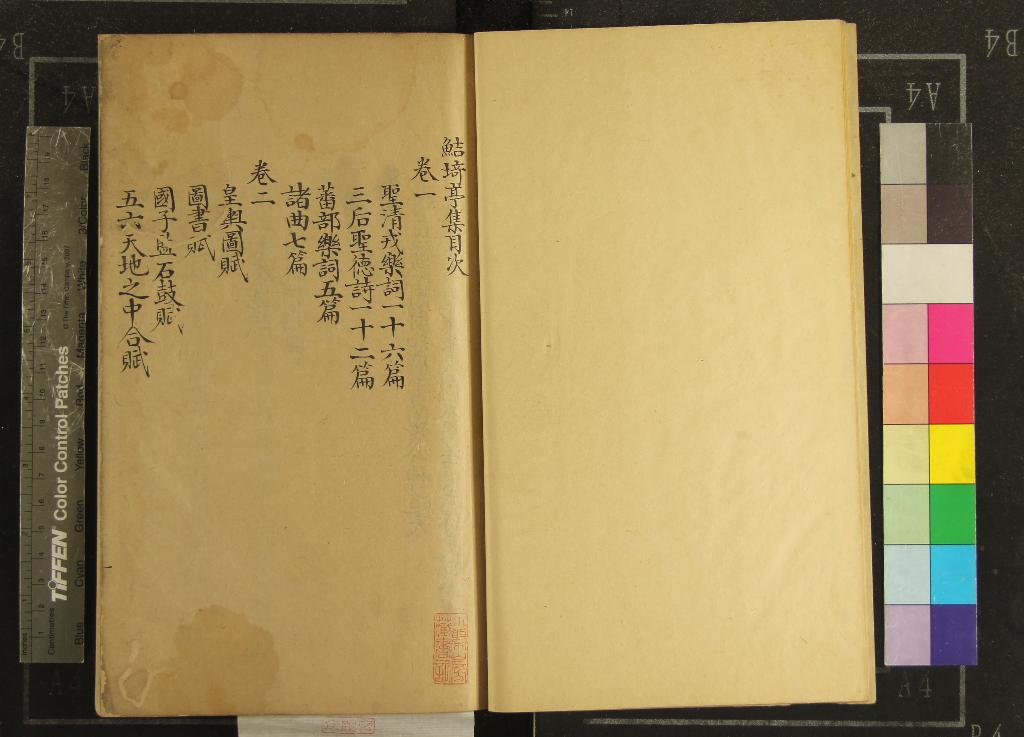 鮚埼亭集目次
卷一
聖清戎樂詞一十六篇
三后聖德詩一十二篇
蕃部樂詞五篇
諸曲七篇
卷二
皇輿圖賦
圖書賦
國子監石鼓賦
五六天地之中合賦
TIFFEN Color Control Patches
© The Tiffen Company, 2007
Centimetres
Inches
Blue
Cyan
Green
Yellow
Red
Magenta
White
3/Color
Black
B4
A4
A4
B4
A4
A4
B4